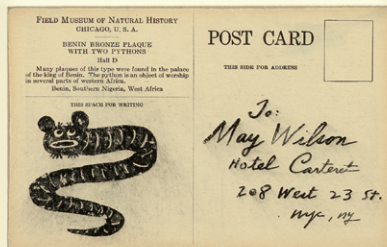 FIELD MUSEUM OF NATURAL HISTORY
CHICAGO, U. S. A.
BENIN BRONZE PLAQUE
WITH TWO PYTHONS
Hall D
Many plaques of this type were found in the palace
of the king of Benin. The python is an object of worship
in several parts of western Africa.
Benin, Southern Nigeria, West Africa
THIS SPACE FOR WRITING
POST CARD
THIS SIDE FOR ADDRESS
To:
May Wilson
Hotel Carteret
208 West 23 St.
NYC, NY